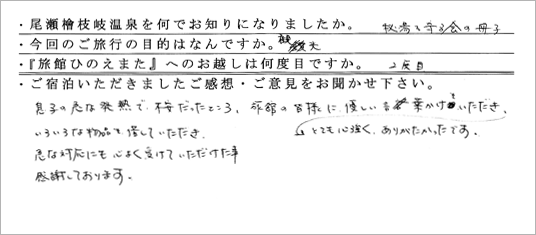 ・尾瀬檜枝岐温泉を何でお知りになりましたか。 秘湯を守る会の冊子
・今回のご旅行の目的はなんですか。
・『旅館ひのえまた』へのお越しは何度目ですか。 2度目
・ご宿泊いただきましたご感想・ご意見をお聞かせ下さい。
息子の急な発熱で、不安だったところ、旅館の皆様に、優しい言葉かけをいただき、
いろいろな物品を、借していただき、 とても心強く、ありがたかったです。
急な対応にも心よく受けていただけた事
感謝しております。